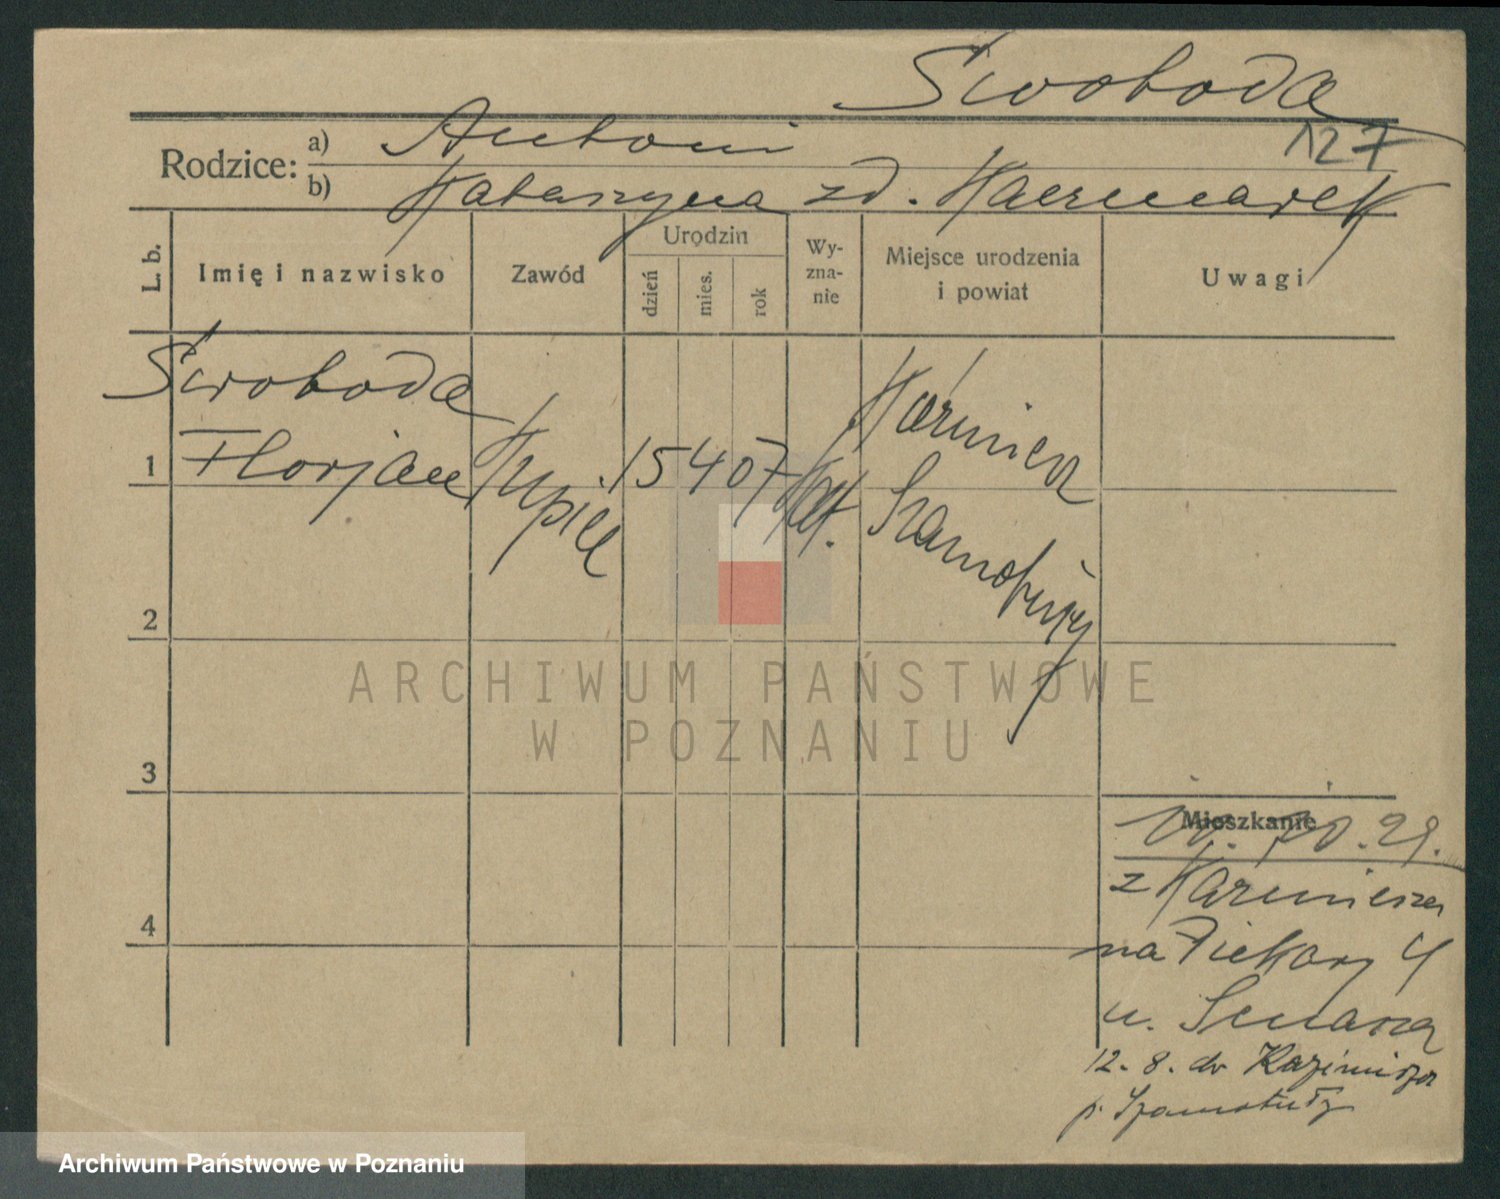 Swoboda
127
Rodzice: a) Antoni
b) Katarzyna zd. Kaczmarek
L. b. Imię i nazwisko Zawód Urodzin dzień mies. rok Wy-zna-nie Miejsce urodzenia i powiat Uwagi
Swoboda
1 Florjan 15 4 07 kat. Kaźmierz
Szamotuły
2
3
4
Mieszkanie
10. 29.
z Kaźmierza
na Piekary 4
u.
12. 8. do Kaźmierza
p. Szamotuły
ARCHIWUM PAŃSTWOWE
W POZNANIU
Archiwum Państwowe w Poznaniu